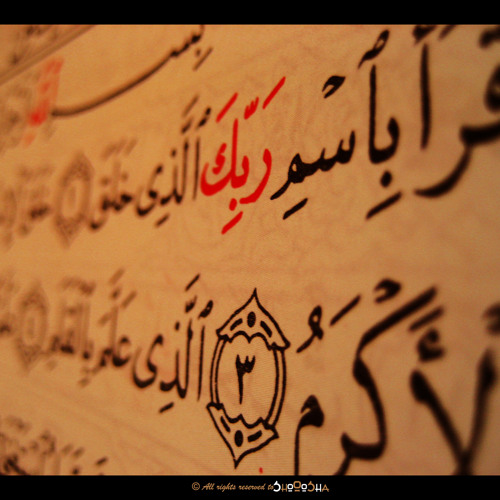 بِسْـ
ٱقْرَأْ بِٱسْمِ رَبِّكَ ٱلَّذِى خَلَقَ ١
ٱلْأَكْرَمُ ٣ ٱلَّذِى عَلَّمَ بِٱلْقَلَمِ ٤
© All rights reserved to SHOOOSHA